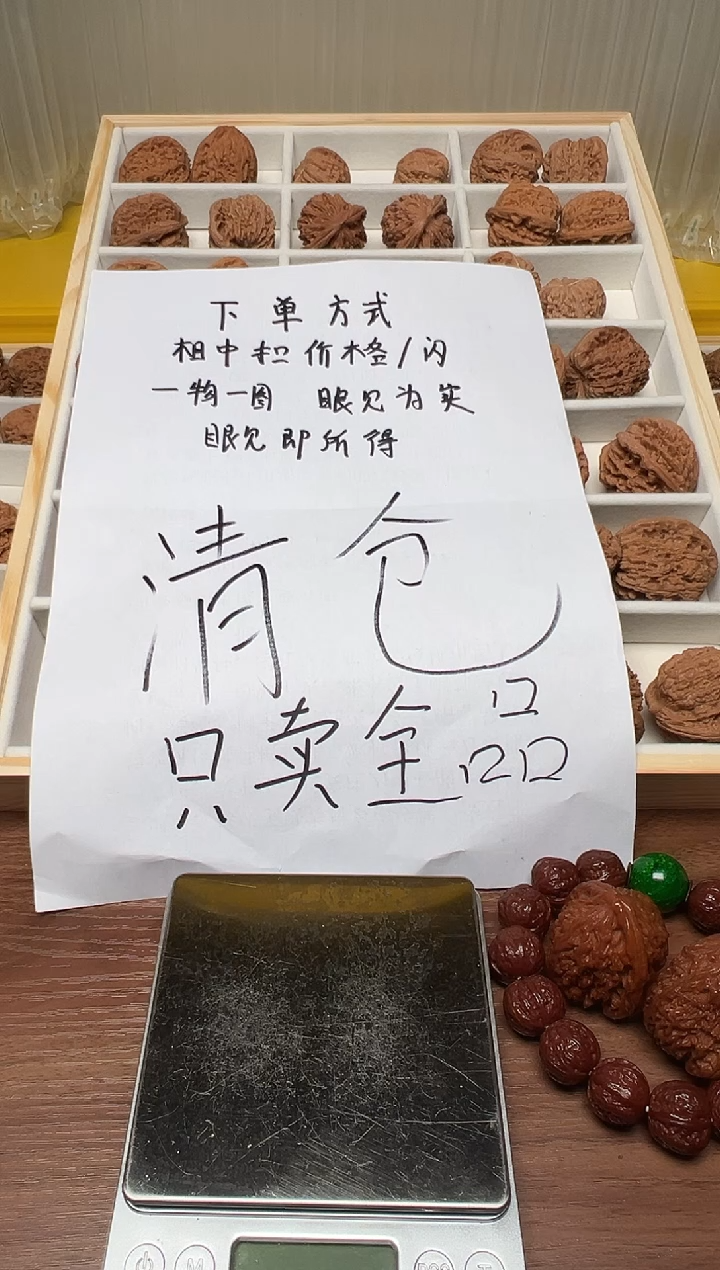 下单方式
相中扣价格/闪
一物一图 眼见为实
眼见即所得
清仓
只卖全品
M
PCS
T